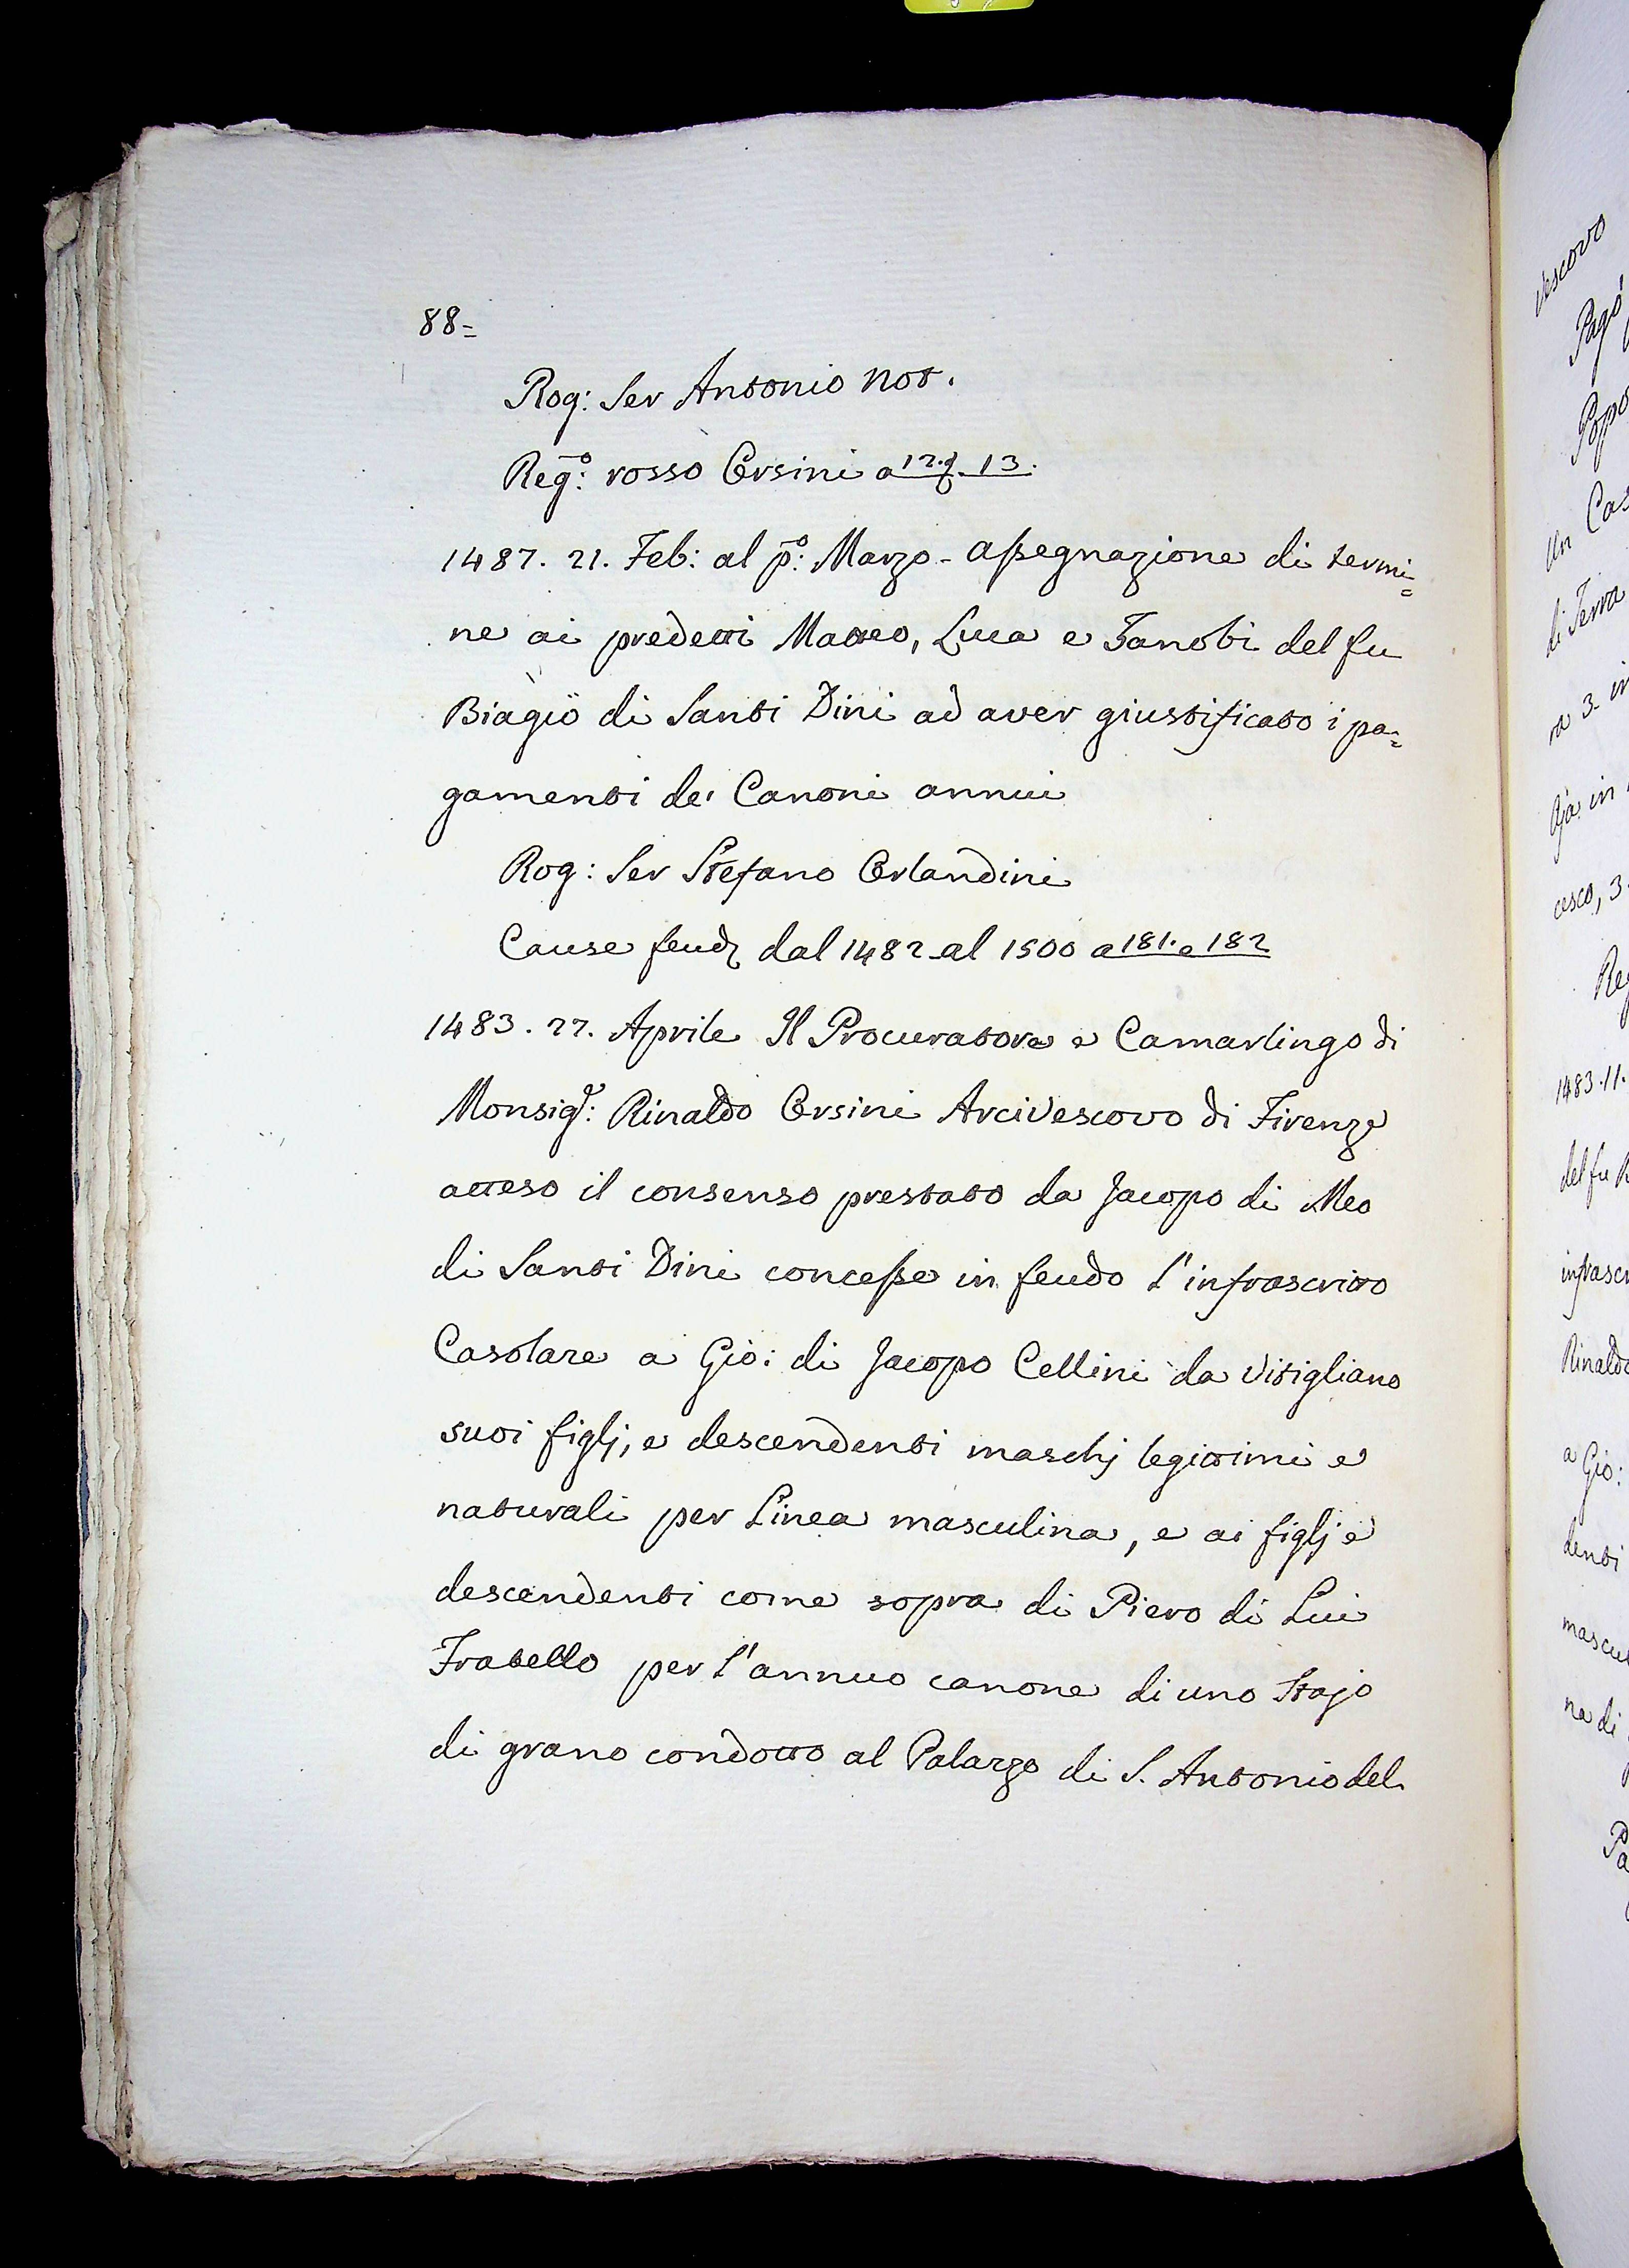 88=
Rog: Ser Antonio Not.
Reg:º rosso Orsini a 12. q 13.
1487. 21. Feb: al p:º Marzo - assegnazione di termi=
ne ai predetti Matteo, Luca e Zanobi del fu
Biagio di Santi Dini ad aver giustificato i pa=
gamenti de' Canoni annui
Rog: Ser Stefano Orlandini
Cause feud. dal 1482 al 1500 a 181. e 182
1483. 22. Aprile Il Procuratore e Camarlingo di
Monsig:r Rinaldo Orsini Arcivescovo di Firenze
atteso il consenso prestato da Jacopo di Meo
di Santi Dini concesse in feudo l'infrascritto
Casolare a Gio: di Jacopo Cellini da Vitigliano
suoi figlj, e descendenti maschj legittimi e
naturali per Linea masculina, e ai figlj e
descendenti come sopra di Piero di Lui
Fratello per l'annuo canone di uno Stajo
di grano condotto al Palazzo di S. Antonio del
vescovo
Pagò
Un Cas
di Terra
ra 3. in
Aja in
cesco, 3.
Reg
1483. 11.
del fu
infrascr
Rinaldo
a Gio:
denti
mascul
na di